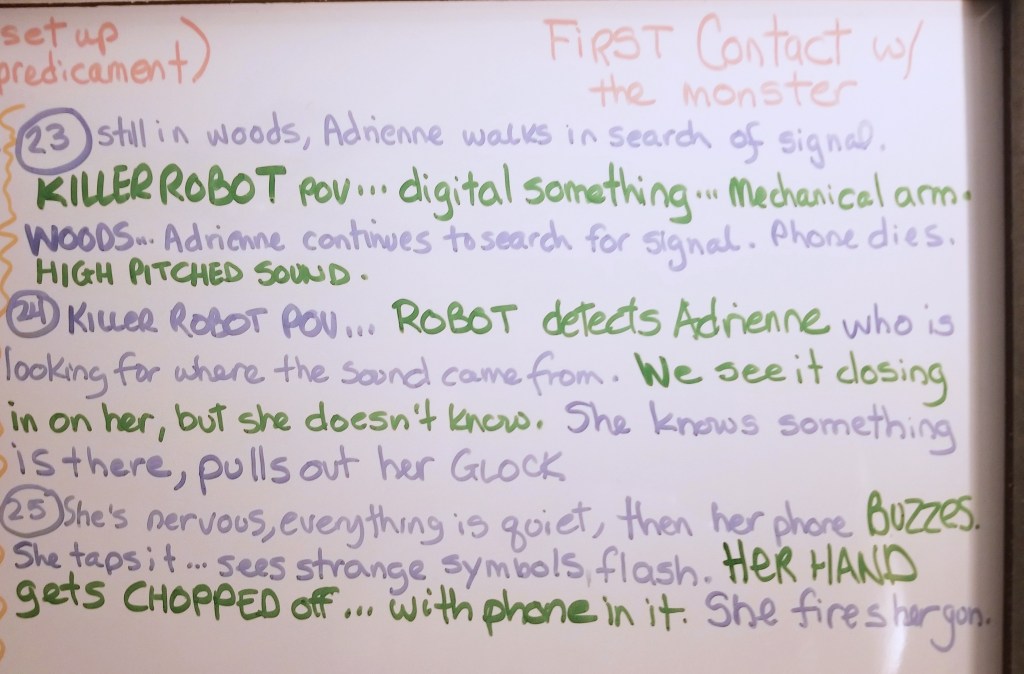 set up
predicament)
FIRST Contact w/
the monster
23 still in woods, Adrienne walks in search of signal.
KILLER ROBOT POV... digital something... Mechanical arm.
WOODS... Adrienne continues to search for signal. Phone dies.
HIGH PITCHED SOUND.
24 KILLER ROBOT POV... ROBOT detects Adrienne who is
looking for where the sound came from. We see it closing
in on her, but she doesn't know. She knows something
is there, pulls out her GLOCK
25 She's nervous, everything is quiet, then her phone BUZZES.
She taps it... sees strange symbols, flash. HER HAND
gets CHOPPED off... with phone in it. She fires her gon.